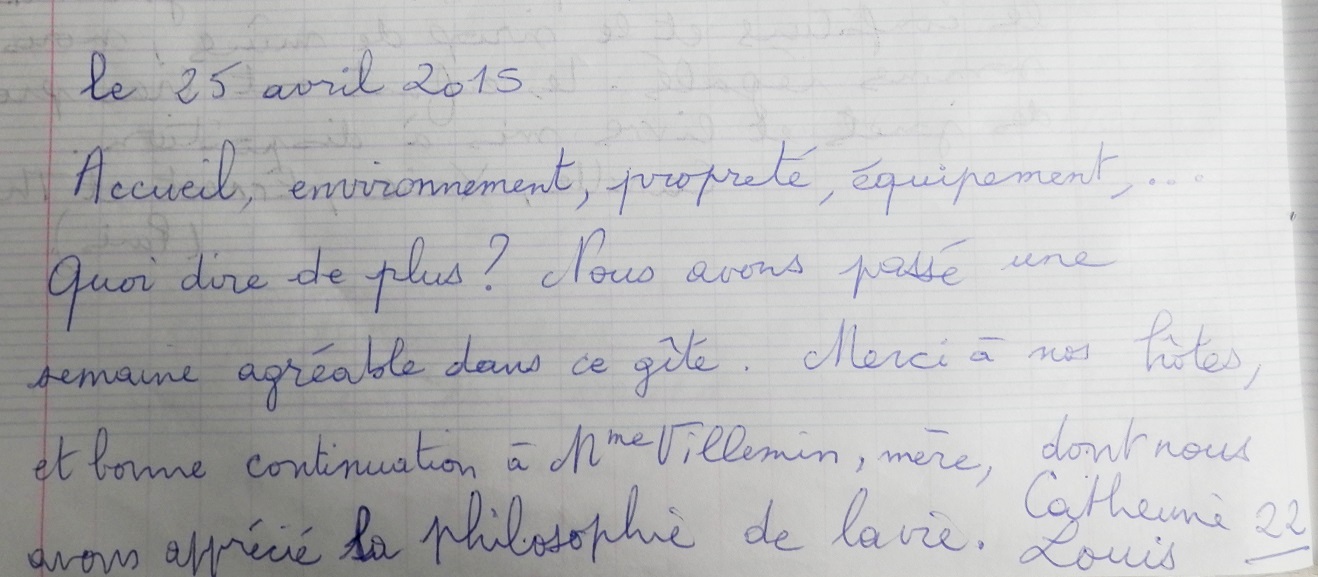 le 25 avril 2015.
Accueil, environnement, propreté, équipement, ...
Quoi dire de plus ? Nous avons passé une
semaine agréable dans ce gîte. Merci à nos hôtes,
et bonne continuation à Mme Villemin, mère, dont nous
avons apprécié la philosophie de la vie. Catherine 22
Louis